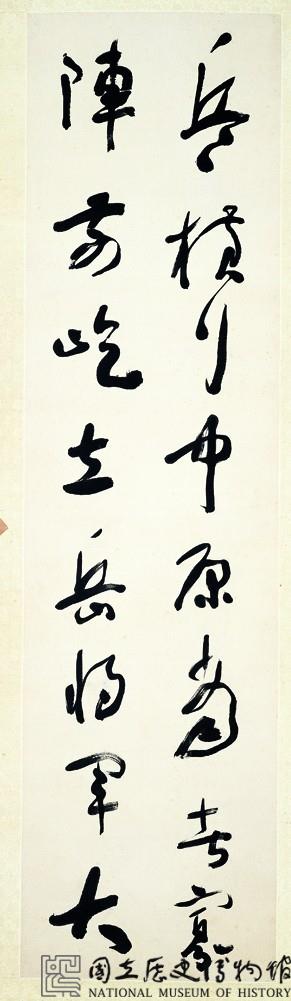 兵橫行中原當者寡
陣前屹立岳將軍大
國立歷史博物館
NATIONAL MUSEUM OF HISTORY